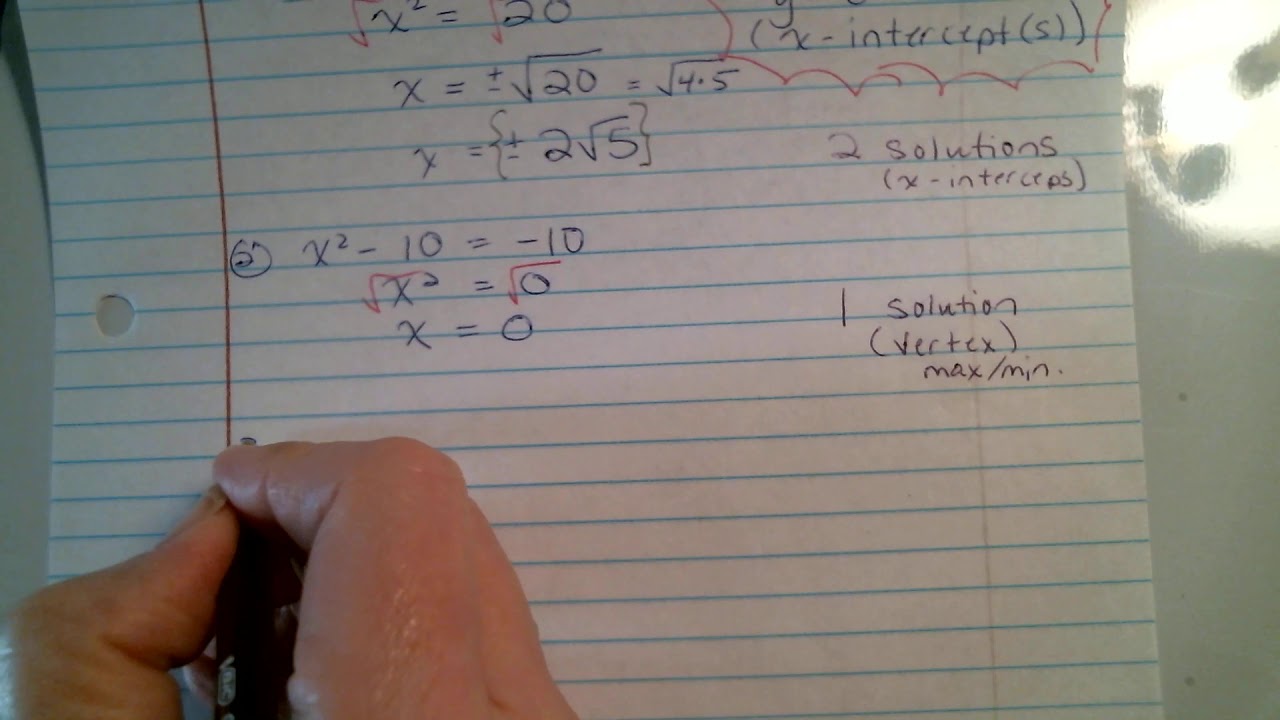 √x² = √20
(x-intercept(s))
x = ±√20 = √4·5
x = {± 2√5}
2 solutions
(x-interceps)
6) x² - 10 = -10
√x² = √0
x = 0
1 solution
(vertex)
max/min.